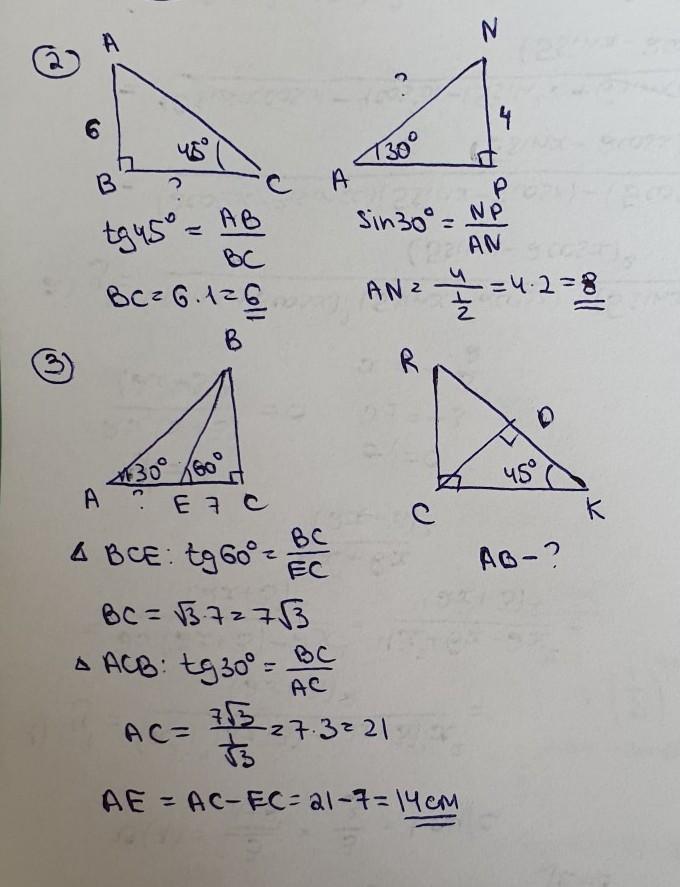 2
A
6
45°
B
?
C
tg45° = AB/BC
BC = 6·1 = 6
N
?
4
30°
A
P
sin30° = NP/AN
AN = 4/(1/2) = 4·2 = 8
3
B
30°
60°
A
?
E 7 C
Δ BCE: tg60° = BC/EC
BC = √3·7 = 7√3
Δ ACB: tg30° = BC/AC
AC = 7√3/(1/√3) = 7·3 = 21
AE = AC-EC = 21-7 = 14см
R
D
45°
C
K
AB-?